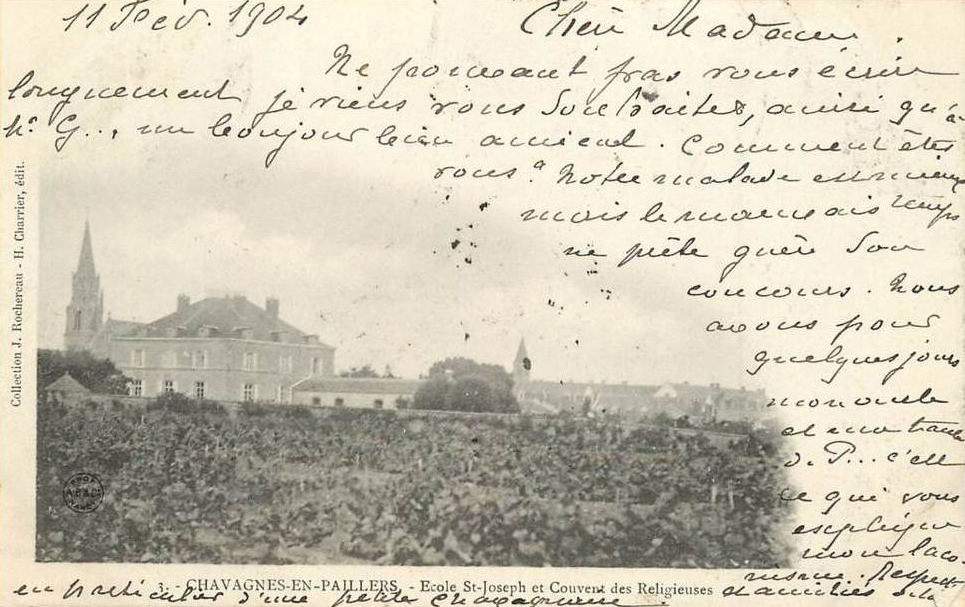 11 Fév. 1904
Chère Madame,
Ne pouvant pas vous écrire
longuement je viens vous souhaiter, ainsi qu'à
Mr G.., un bonjour bien amical. Comment êtes
vous? Notre malade est mieux
mais le mauvais temps
ne prête guère son
concours. Nous
avons pour
quelques jours
mon oncle
et ma tante
de P... c'est
ce qui vous
explique
mon laco-
nisme. Respect
et amitiés de la
en particulier d'une petite Chavagnaise.
Collection J. Rochereau - H. Charrier, édit.
3. - CHAVAGNES-EN-PAILLERS. - Ecole St-Joseph et Couvent des Religieuses